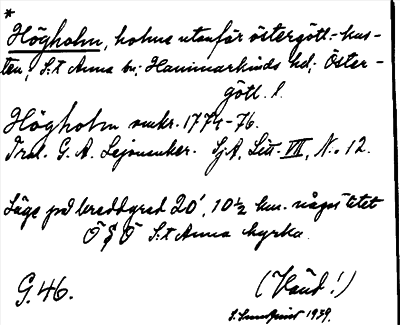 *
Högholm, holme utanför östergöt.-kus-
ten, S:t Anna sn; Hammarkinds hd; Öster-
götl. l.
Högholm omkr. 1774-76.
Trol. G. A. Leijonancker. Sj A, Lit. VII, No. 12.
Läge på breddgrad 20', 10 1/2 km. något litet
Ö § Ö S:t Anna kyrka.
G. 46.
(Vänd!)
S. Lundquist 1939.